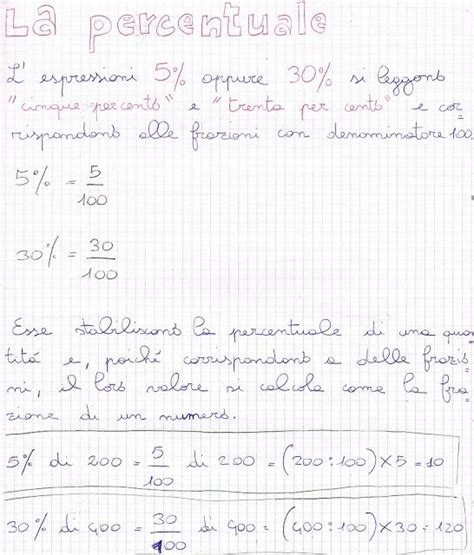 La percentuale
L' espressioni 5% oppure 30% si leggono
"cinque per cento" e "trenta per cento" e cor
rispondono alle frazioni con denominatore 100.
5% = 5/100
30% = 30/100
Esse stabiliscono la percentuale di una quan
titá e, poiché corrispondono a delle frazio=
ni, il loro valore si calcola come la fra=
zione di un numero.
5% di 200 = 5/100 di 200 = (200:100)×5 = 10
30% di 400 = 30/100 di 400 = (400:100)×30 = 120